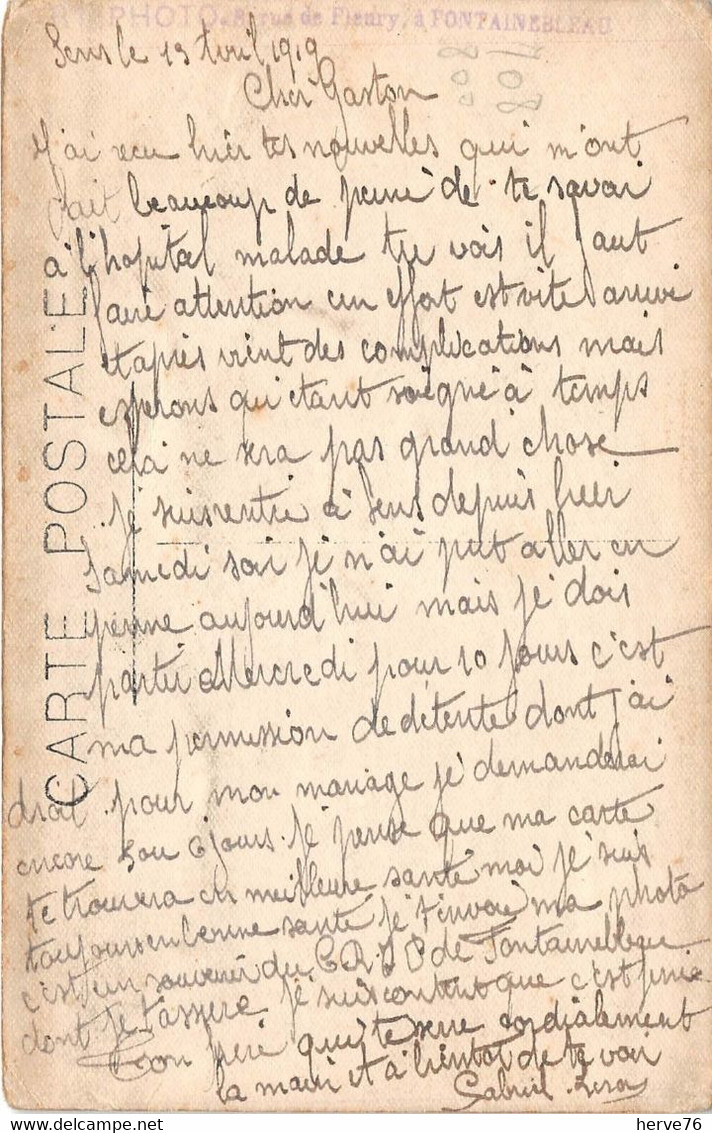 PHOTO. rue de Fleury, à FONTAINEBLEAU
Sens le 13 Avril 1919
208
807
Cher Gaston
J'ai recu hier tes nouvelles qui m'ont
fait beaucoup de peine de te savoir
a l'hopital malade tu vois il faut
faire attention un effort est vite arrivé
et après vient des complications mais
esperons qu'etant soigné à temps
cela ne sera pas grand chose
Je suis rentré à Sens depuis hier
Samedi soir je n'ai put aller en
perme aujourd'hui mais je dois
partir Mercredi pour 10 jours c'est
ma permission de détente dont j'ai
droit pour mon mariage je demanderai
encore 5 ou 6 jours. Je pense que ma carte
te trouvera en meilleure santé moi je suis
toujours en bonne santé je t'envoie ma photo
c'est un souvenir du de Fontainebleau
dont je t'assure je suis content que c'est fini
Ton qui te serre cordialement
la main et à bientot de te voir
Gabriel
CARTE POSTALE
herve76